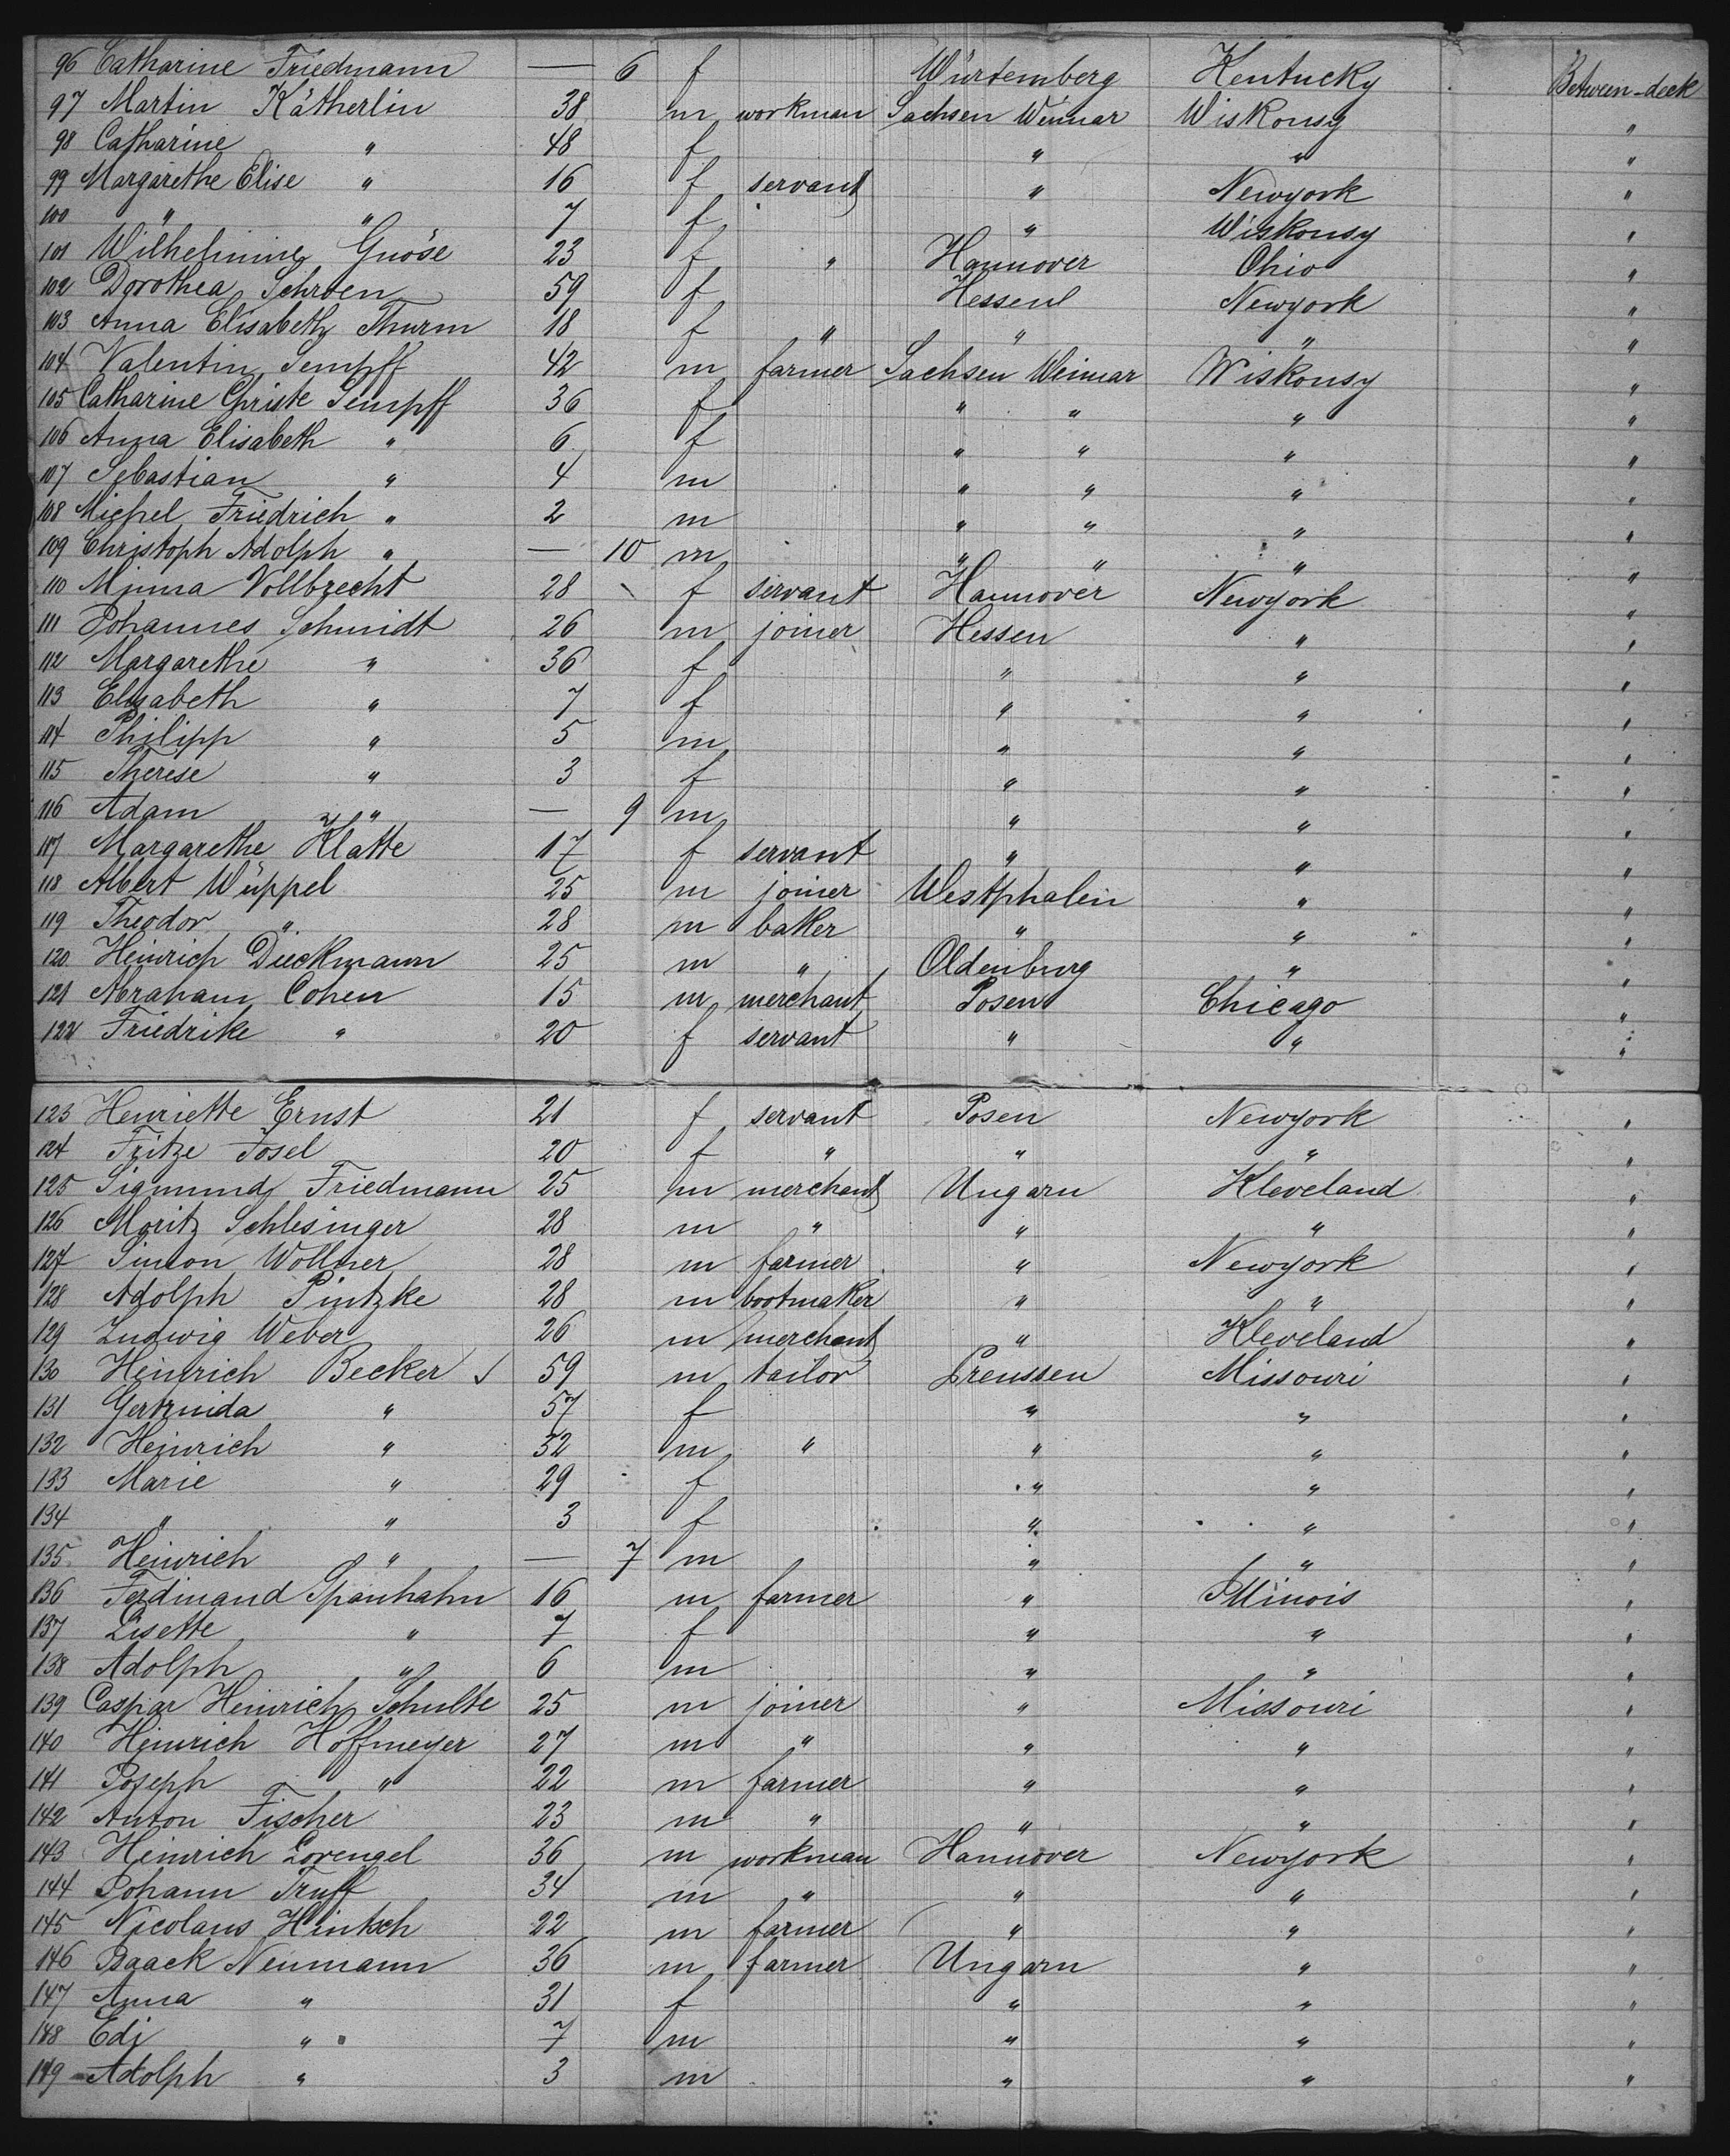 96 Catharine Friedmann — 6 f Würtemberg Kentucky Between-deck
97 Martin Kätherlin 38 m workman Sachsen Weimar Wiskonsy "
98 Catharine " 48 f " " "
99 Margarethe Elise " 16 f servant " Newyork "
100 " " 7 f " Wiskonsy "
101 Wilhelmine Gnöse 23 f " Hannover Ohio "
102 Dorothea Schroen 59 f Hessen Newyork "
103 Anna Elisabeth Thurm 18 f " " " "
104 Valentin Sempff 42 m farmer Sachsen Weimar Wiskonsy "
105 Catharine Christe Sempff 36 f " " " "
106 Anna Elisabeth " 6 f " " " "
107 Sebastian " 4 m " " " "
108 Michel Friedrich " 2 m " " " "
109 Christoph Adolph " — 10 m " " " "
110 Minna Vollbrecht 28 f servant Hannover Newyork "
111 Johannes Schmidt 26 m joiner Hessen " "
112 Margarethe " 36 f " " "
113 Elisabeth " 7 f " " "
114 Philipp " 5 m " " "
115 Therese " 3 f " " "
116 Adam " — 9 m " " "
117 Margarethe Klatte 17 f servant " " "
118 Albert Wüppel 25 m joiner Westphalen " "
119 Theodor " 28 m baker " " "
120 Heinrich Dieckmann 25 m " Oldenburg " "
121 Abraham Cohen 15 m merchant Posen Chicago "
122 Friedrike " 20 f servant " " "
123 Henriette Ernst 21 f servant Posen Newyork "
124 Fritze Josel 20 f " " " "
125 Sigmund Friedmann 25 m merchant Ungarn Kleveland "
126 Moritz Schlesinger 28 m " " " "
127 Simon Wollner 28 m farmer " Newyork "
128 Adolph Pintzke 28 m bootmaker " " "
129 Ludwig Weber 26 m merchant " Kleveland "
130 Heinrich Becker 59 m tailor Preussen Missouri "
131 Gertruida " 57 f " " "
132 Heinrich " 32 m " " " "
133 Marie " 29 f " " "
134 " " 3 f " " "
135 Heinrich " — 7 m " " "
136 Ferdinand Spanhahn 16 m farmer " Illinois "
137 Lisette " 7 f " " "
138 Adolph " 6 m " " "
139 Caspar Heinrich Schulte 25 m joiner " Missouri "
140 Heinrich Hoffmeyer 27 m " " " "
141 Joseph " 22 m farmer " " "
142 Anton Fischer 23 m " " " "
143 Heinrich Lorengel 36 m workman Hannover Newyork "
144 Johann Truff 34 m " " " "
145 Nicolaus Hintsch 22 m farmer " " "
146 Isaack Neumann 36 m farmer Ungarn " "
147 Anna " 31 f " " "
148 Edi " 7 m " " "
149 Adolph " 3 m " " "